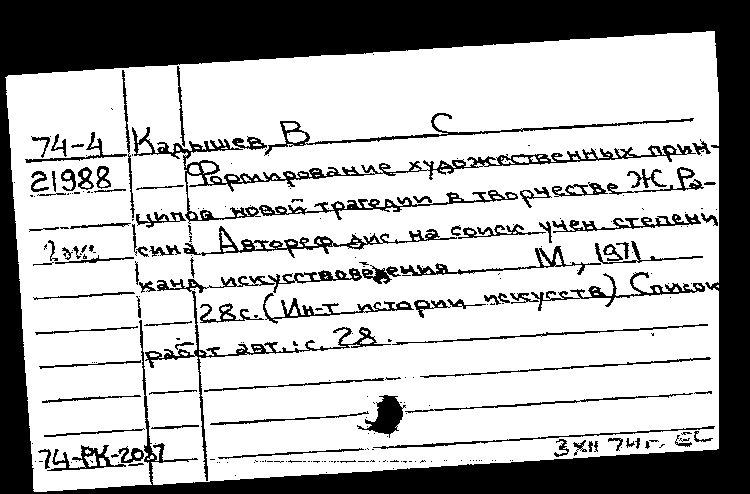 74-4 Кадышев, В С
21988 Формирование художественных прин-
ципов новой трагедии в творчестве Ж. Ра-
сина. Автореф. дис. на соиск. учен. степени
канд. искусствоведения. М., 1971.
28с. (Ин-т истории искусств) Список
работ авт.: с. 28.
74-РК-2037
3 XII 74г.